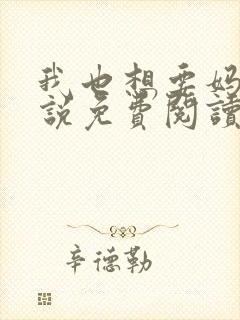 我也想要妈
說免費閱讀
辛德勒